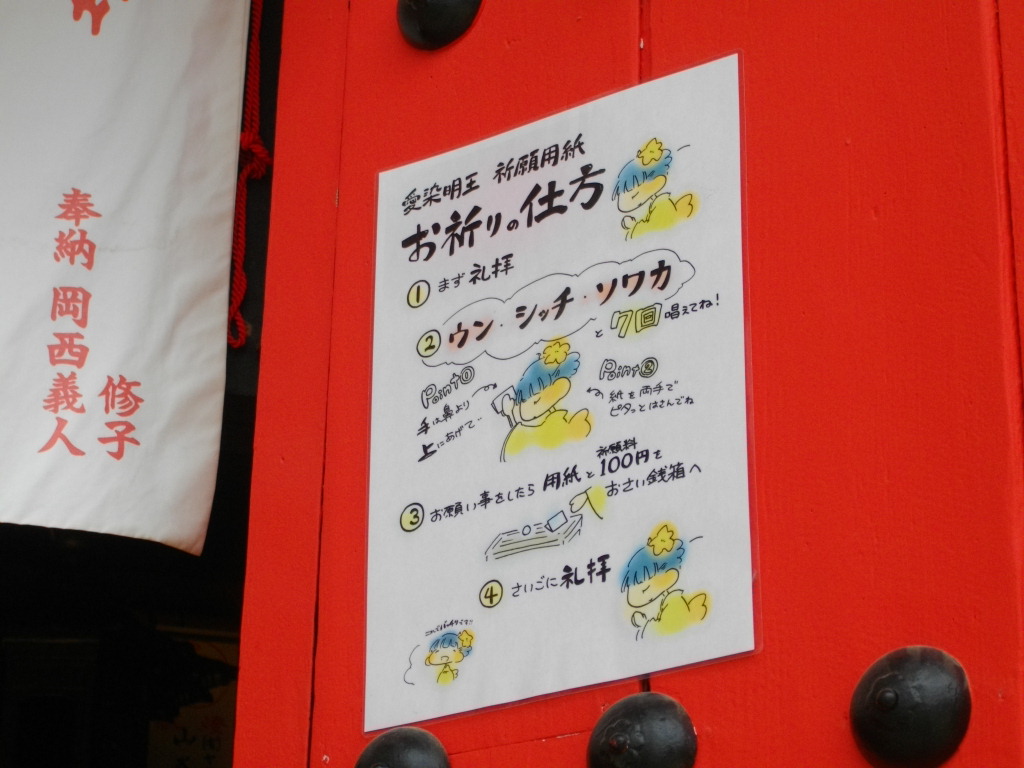 愛染明王 祈願用紙
お祈りの仕方
① まず礼拝
② ウン・シッチ・ソワカ
と7回唱えてね!
Point①
手は鼻より
上にあげて‥
Point②
紙を両手で
ピタッとはさんでね
祈願料
③ お願い事をしたら 用紙と100円を
おさい銭箱へ
④ さいごに礼拝
奉納 岡西義人
修子